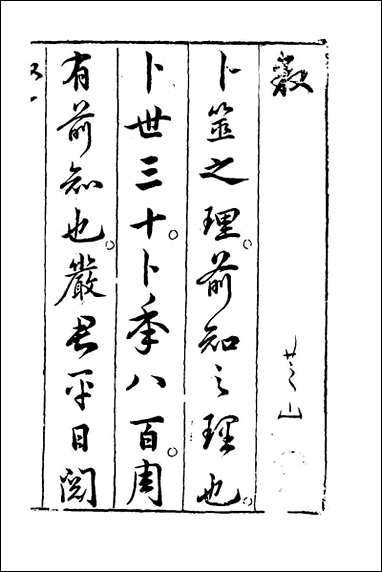 芝山
卜筮之理。前知之理也。
卜世三十。卜秊八百。周
有前知也。嚴君平日閱